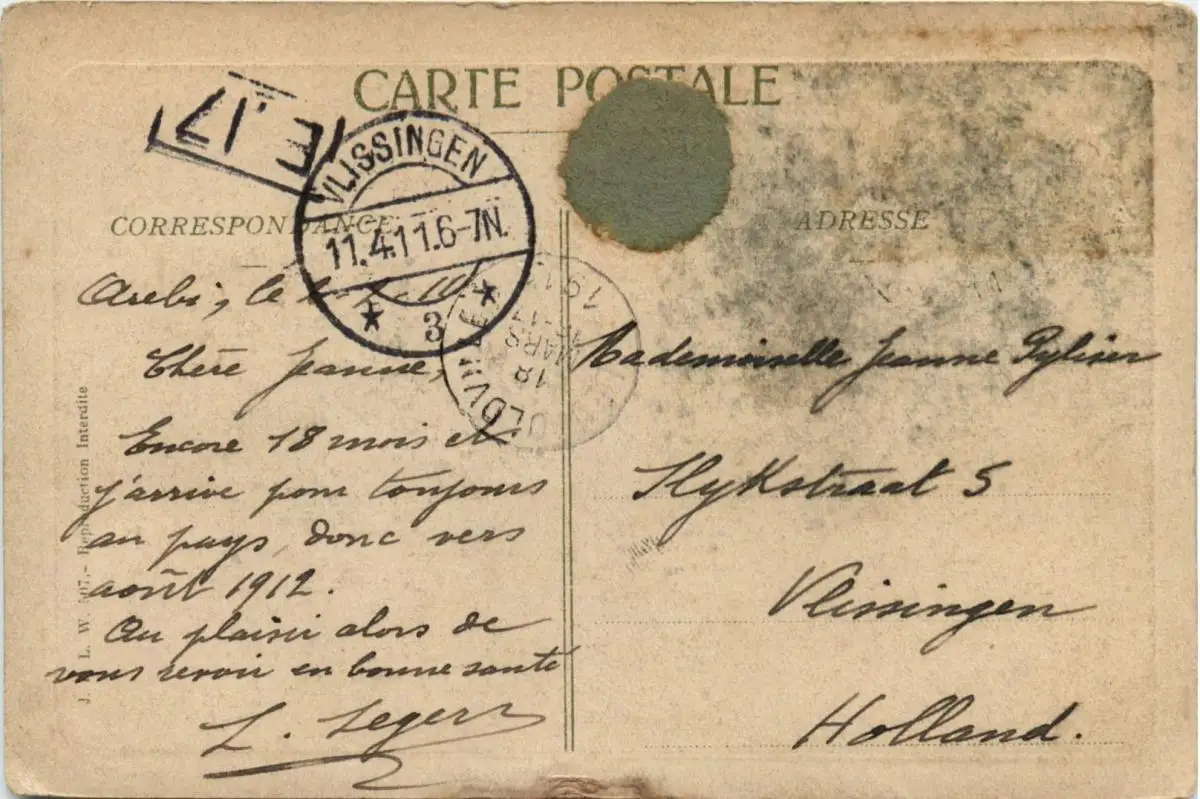 CARTE POSTALE
E .17
VLISSINGEN
11.4.11.6-7N.
3
CORRESPONDANCE
ADRESSE
18
MARS
Arebi, le
Chère Jeanne,
Encore 18 mois et
j'arrive pour toujours
au pays, donc vers
août 1912.
Au plaisir alors de
vous revoir en bonne santé
L. Legers
Mademoiselle Jeanne
Slykstraat 5
Vlissingen
Holland.
J. L. W. Reproduction Interdite